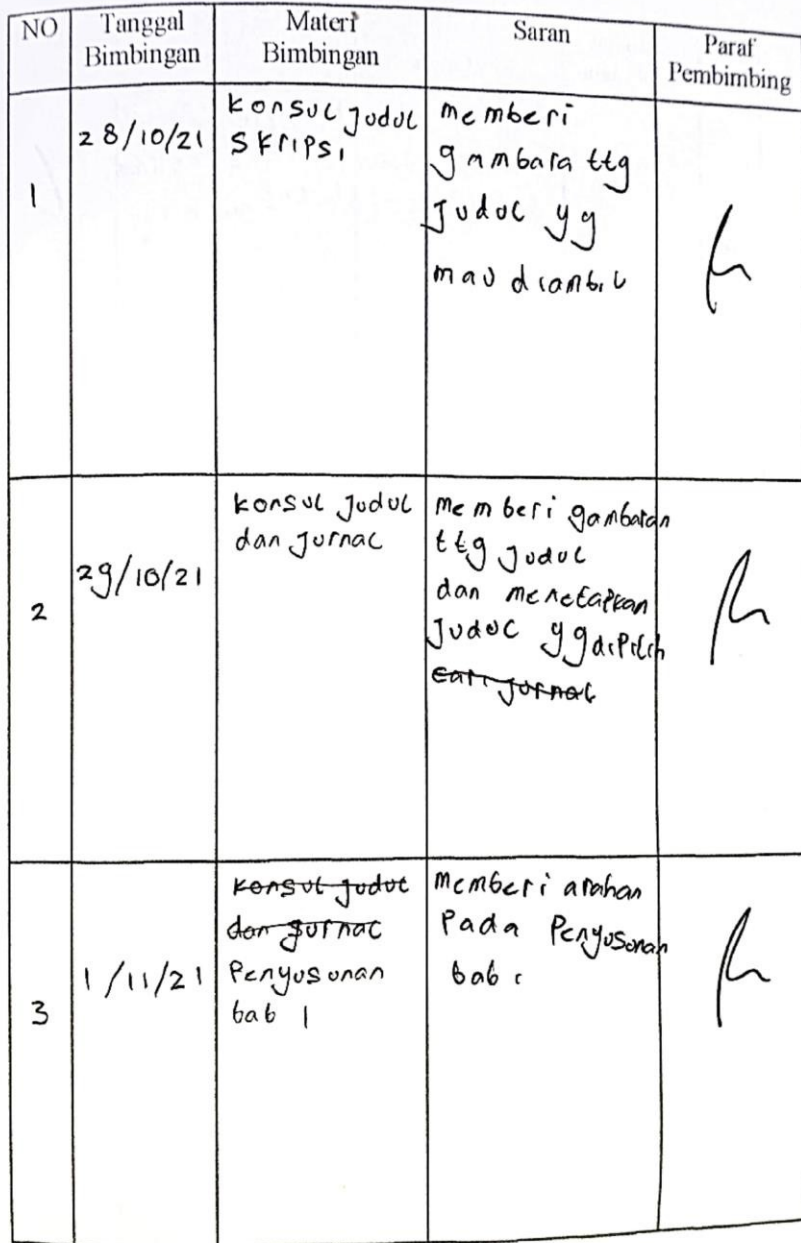 NO
Tanggal
Bimbingan
Materi
Bimbingan
Saran
Paraf
Pembimbing
1
28/10/21
konsul judul
skripsi
memberi
gambara ttg
judul yg
mau diambil
2
29/10/21
konsul judul
dan jurnal
memberi gambaran
ttg judul
dan menetapkan
judul yg dipilih
cari jurnal
3
1/11/21
konsul judul
dan jurnal
Penyusunan
bab 1
memberi arahan
Pada Penyusunan
bab 1